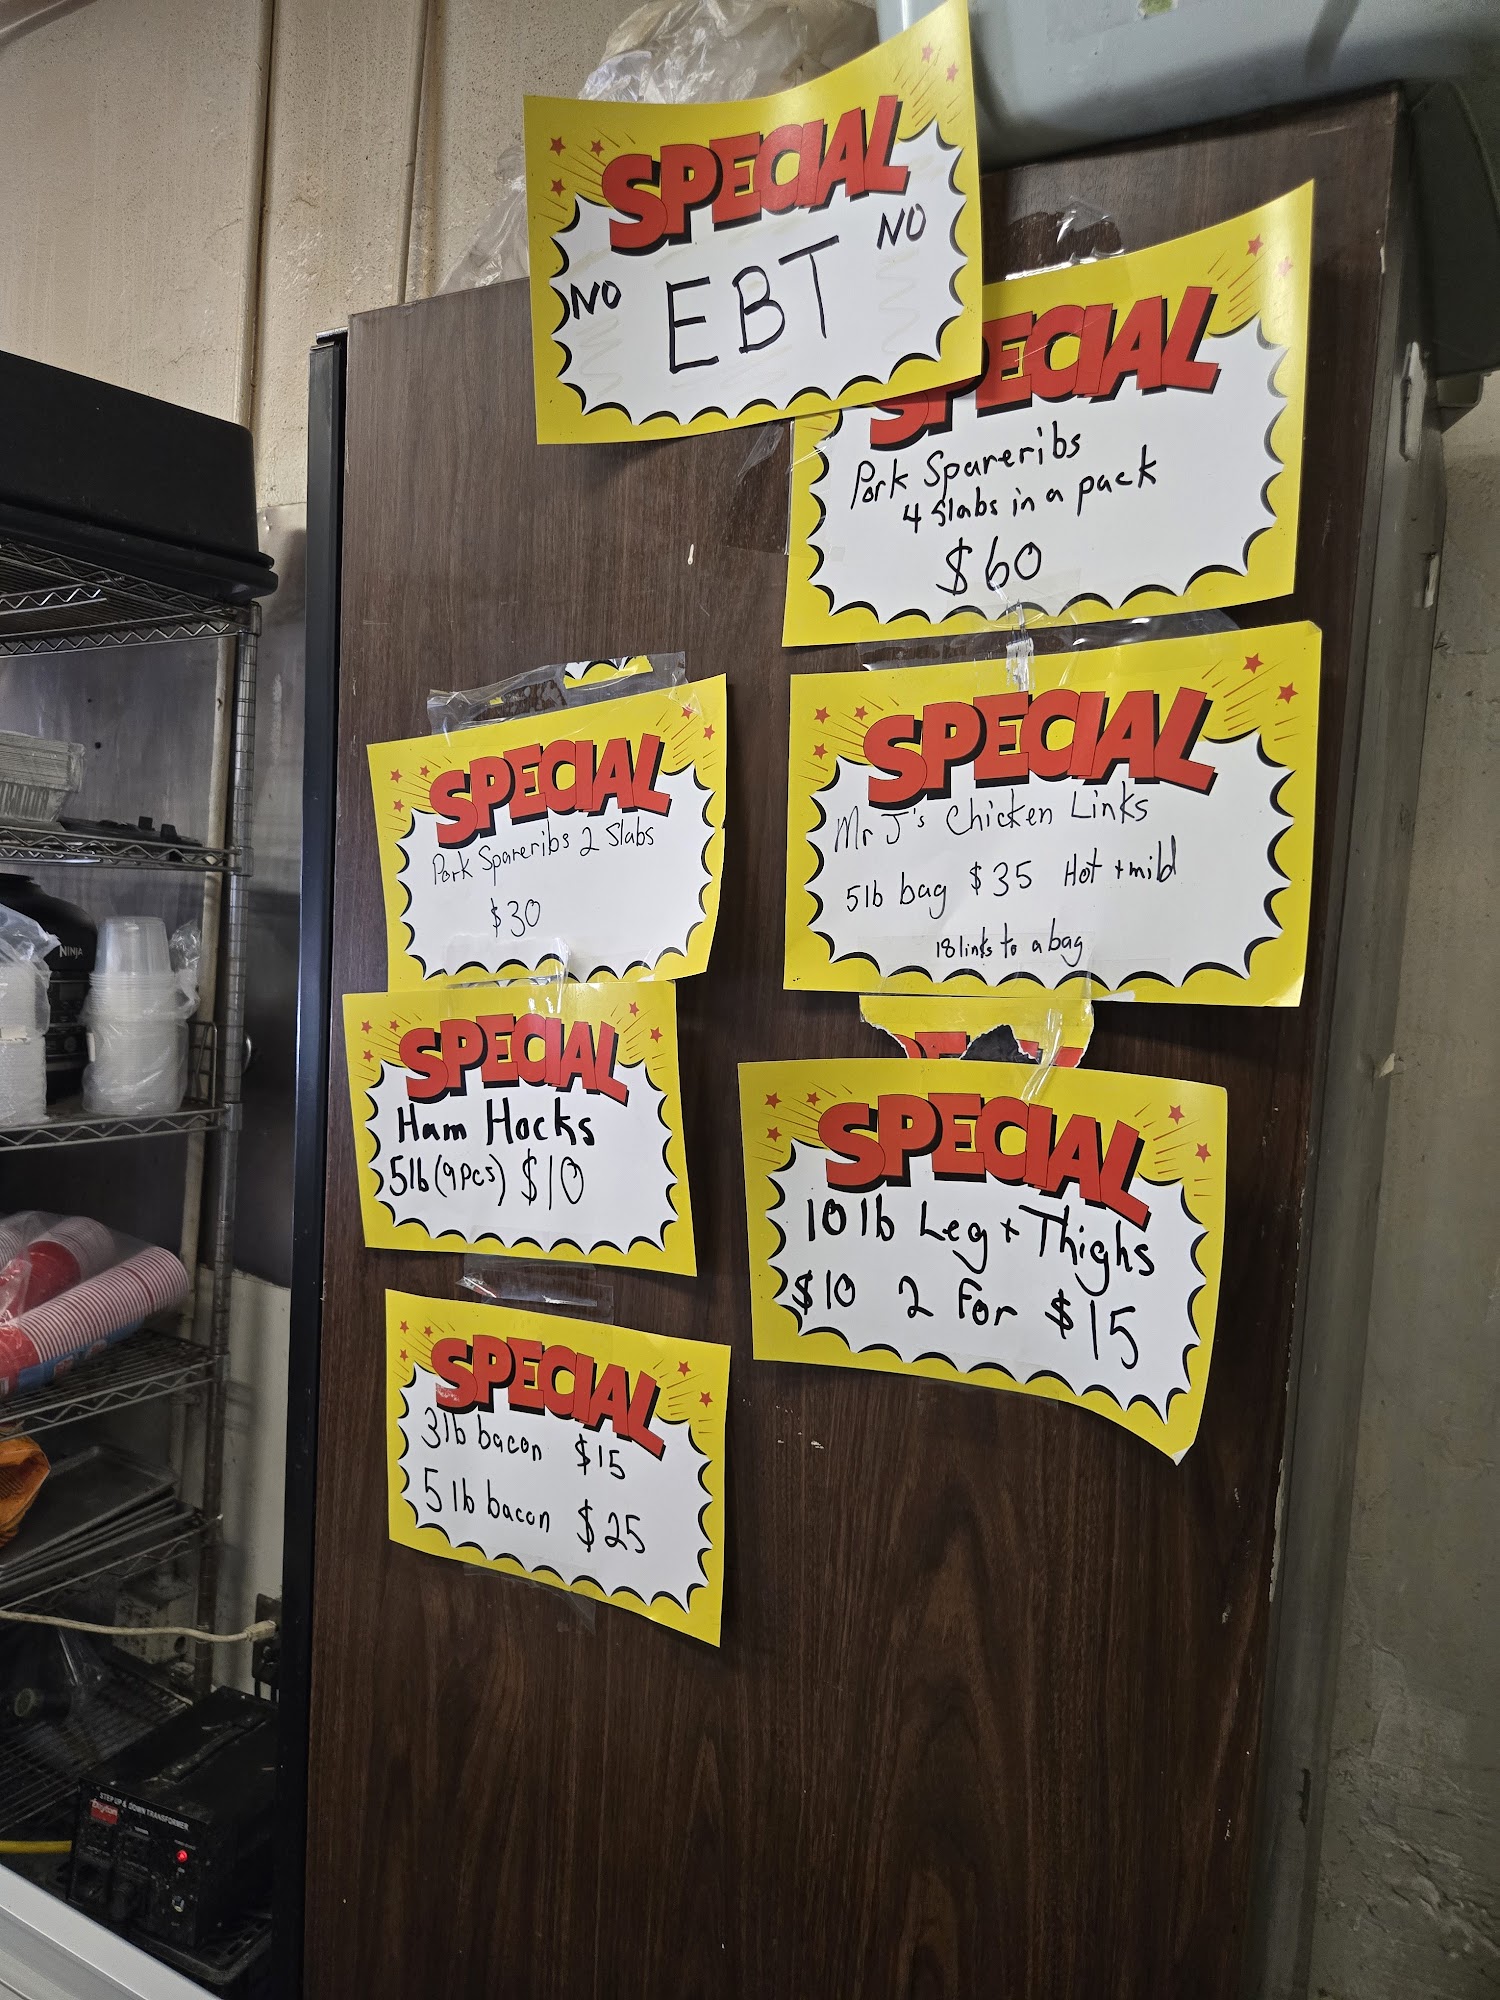 SPECIAL
NO EBT NO
SPECIAL
Pork Spareribs
4 Slabs in a pack
$60
SPECIAL
Pork Spareribs 2 Slabs
$30
SPECIAL
Mr J's Chicken Links
5lb bag $35 Hot + mild
18 links to a bag
SPECIAL
Ham Hocks
5lb (9pcs) $10
SPECIAL
10 lb Leg + Thighs
$10 2 For $15
SPECIAL
3lb bacon $15
5 lb bacon $25
NINJA
STEP UP & DOWN TRANSFORMER